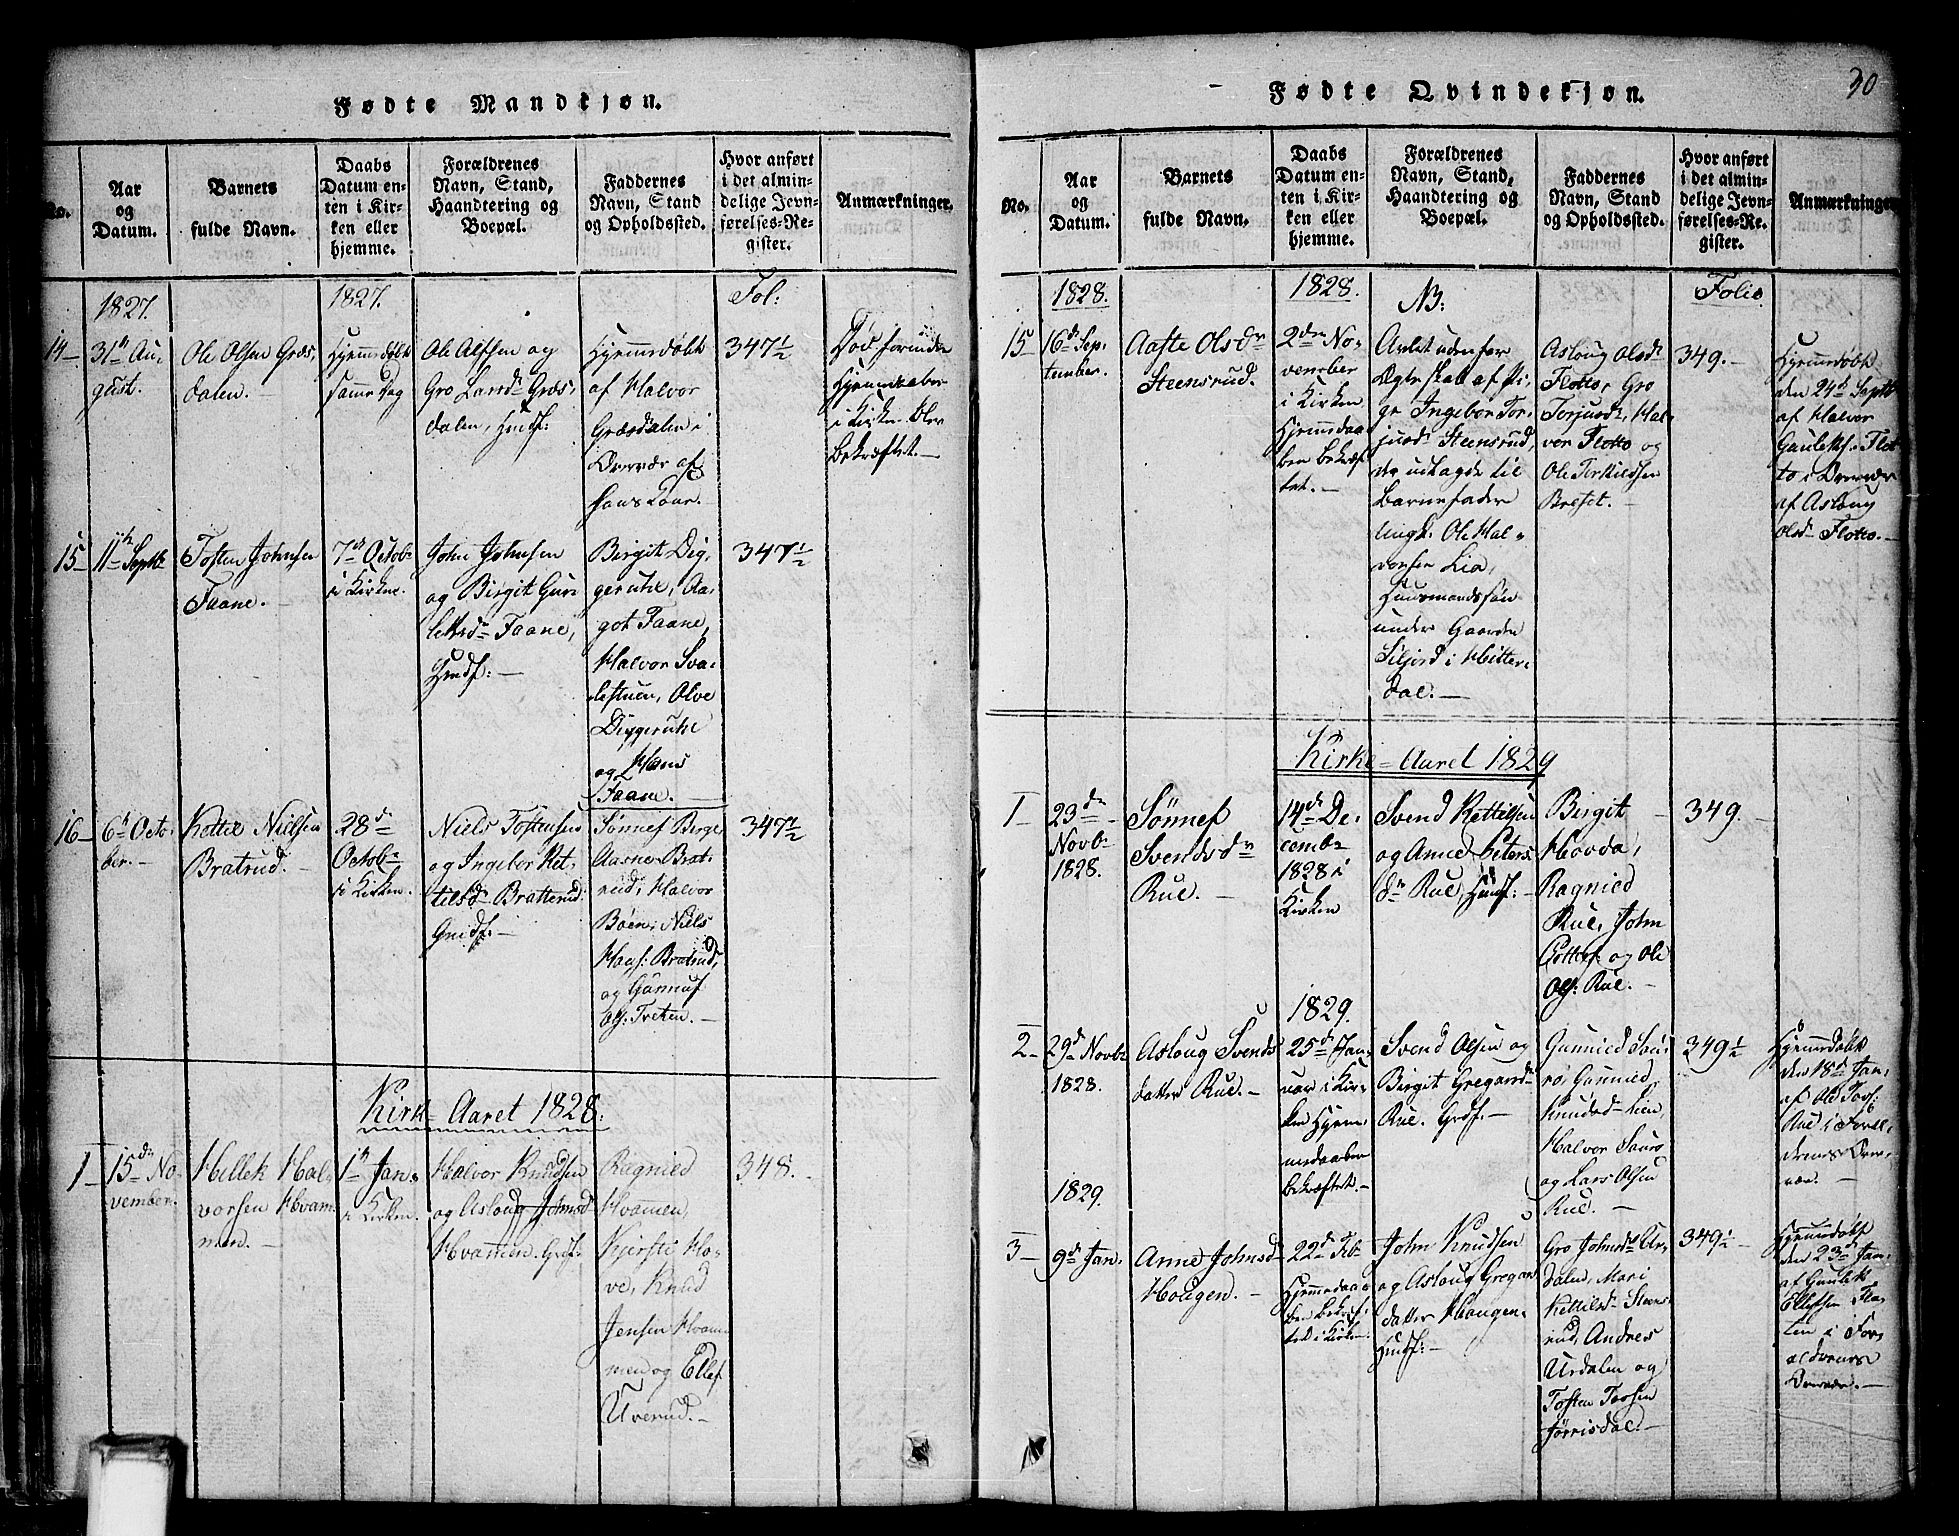 Fødte Mandkjøn.
No.
Aar
og
Datum.
Barnets
fulde Navn.
Daabs
Datum en-
ten i Kir-
ken eller
hjemme.
Forældrenes
Navn, Stand,
Haandtering og
Boepæl.
Faddernes
Navn, Stand
og Opholdssted.
Hvor anført
i det almin-
delige Jevn-
førelses-Re-
gister.
Anmærkninger.
1827.
1827.
Fol:
14
31te Au-
gust.
Ole Olsen Græs-
dalen.
Hjemmedøbt
samme Dag
Ole Olssen og
Gro Larsd. Græs-
dalen, Huusf:
Hjemmedøbt
af Halvor
Græsdalen i
Overvær af
hans Kone.
347½
Død forinden
Hjemmedaaben
i Kirken blev
bekræftet.
15
11te Septbr
Tosten Johnsen
Faane.
7de Octobr
i Kirken.
John Johnsen
og Birgit Gun-
leksdr Faane,
Huusf:
Birgit Dig-
gerutke, Aa-
got Faane,
Halvor Sva-
lestuen, Olve
Diggerutke
og Hans
Faane.
347½
16
6te Octo-
ber.
Kettil Nielsen
Bratrud.
28de
Octobr
i Kirken.
Niels Tostensen
og Ingebor Ket-
tilsd. Bratterud.
Grdf.
Sønnef Berge
Aasne Brat-
rud, Halvor
Bøen, Niels
Hans: Bratrud,
og Gunnuf
Ols: Treten.
347½
Kirke-Aaret 1828.
1
15de No-
vember.
Hellek Hal-
vorsen Hvam-
men.
1te Jan.
i Kirken.
Halvor Knudsen
og Asloug Johnsd.
Hvammen. Grdf.
Ragnied
Hvamen,
Kjersti Ho-
ve, Knud
Jensen Hvam-
men og Ellef
Uverud.
348.
Fødte Qvindekjøn.
30
No.
Aar
og
Datum.
Barnets
fulde Navn.
Daabs
Datum en-
ten i Kir-
ken eller
hjemme.
Forældrenes
Navn, Stand,
Haandtering og
Boepæl.
Faddernes
Navn, Stand
og Opholdssted.
Hvor anført
i det almin-
delige Jevn-
førelses-Re-
gister.
Anmærkninger
1828.
1828.
NB:
Folio
15
16de Sep-
tember.
Aaste Olsdr
Steensrud.
2den No-
vember
i Kirken
Hjemmedaa-
ben bekræf-
tet.
Avlet udenfor
Ægteskab af Pi-
ge Ingebor Tor-
jusd. Steensrud,
der udlagde til
Barnefader
Ungk: Ole Hal-
vorsen Lia,
Huusmandssøn
under Gaarden
Siljord i Hitter-
dal.
Asloug Olsd.
Flotto, Gro
Torjusd., Hal-
vor Flotto og
Ole Terkildsen
Breset.
349.
Hjemmedøbt
den 24de Septbr
af Halvor
Gunleks: Flot-
to i Overvær
af Asloug
Olsd. Flotto.
Kirke-Aaret 1829
1
23de
Novbr
1828.
Sønnef
Svendsdr
Rue.
14de De-
cembr
1828 i
Kirken
Svend Kettilsen
og Anne Peters-
dr Rue, Huusf:
Birgit
Hovda,
Ragnied
Rue, John
og Ole
Ols: Rue.
349.
1829.
2
29de Novbr
1828.
Asloug Svends-
datter Rue.
25de Jan-
uar i Kir-
ken Hjem-
medaaben
bekræftet.
Svend Olsen og
Birgit Gregarsd.
Rue. Grdf.
Gunnied Sau-
rø, Gunnied
Knudsd. Lien,
Halvor Saurø
og Lars Olsen
Rue.
349½
Hjemmedøbt
den 18de Jan.
af Ole Tors:
Rue i Foræl-
drenes Over-
vær.
1829.
3
9de Jan.
Anne Johnsd.
Hougen.
22de Feb.
Hjemmedaa-
ben bekræf-
tet i Kirken
John Knudsen
og Asloug Gregars-
datter Haugen.
Huusf:
Gro Johnsd. Ur-
dalen, Mari
Kettilsd. Steens-
rud, Andres
Urdalen og
Tosten Torsen
Jørrisdal.
349½
Hjemmedøbt
den 23de Jan.
af Gunlek
Ellefsen Fla-
ten i For-
ældrenes
Overvær.